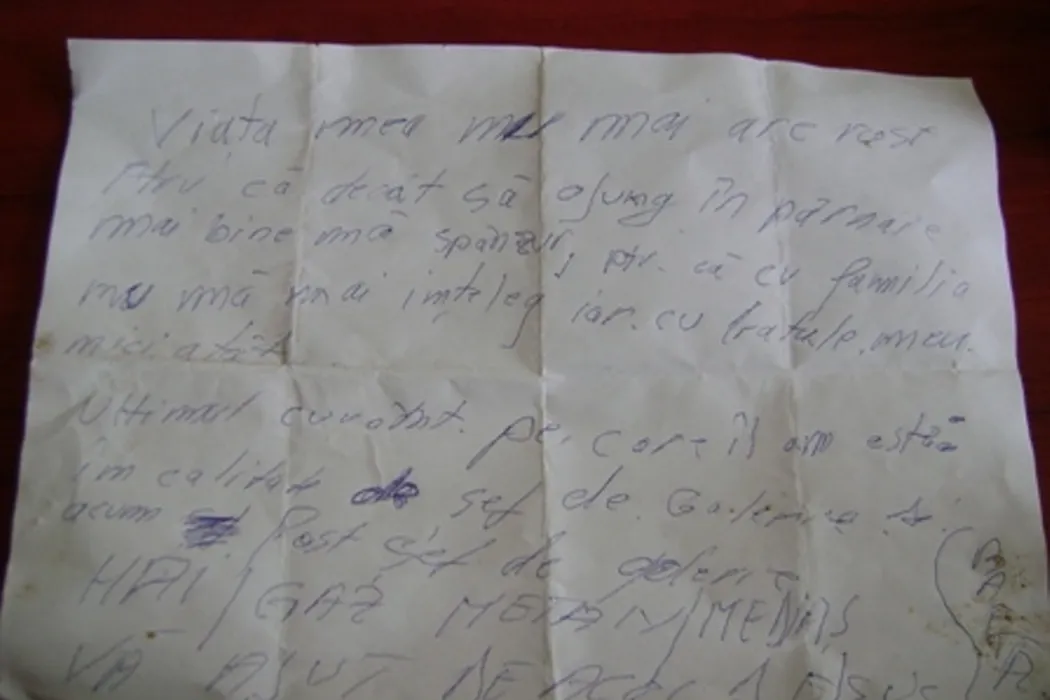 Viața mea nu mai are rost
Ptru că decât să ajung în părnaie
mai bine mă spânzur, ptr. că cu familia
nu mă mai înțeleg iar. cu fratele. meu.
nici atât
Ultimul cuvânt. pe. care îl am estă
în calitate de șef de Galerie
acum fost șef de galerie
HAI GAZ METAN MEDIAȘ
VĂ AJUT DE ACOLO DE SUS